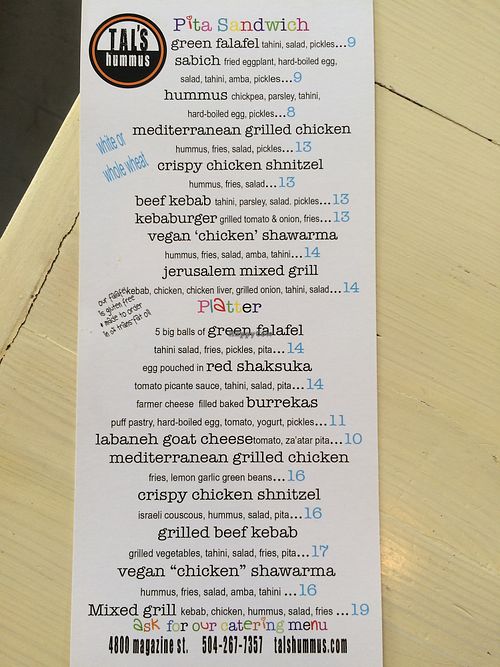 TAL'S
hummus
Pita Sandwich
green falafel tahini, salad, pickles...9
sabich fried eggplant, hard-boiled egg,
salad, tahini, amba, pickles...9
hummus chickpea, parsley, tahini,
hard-boiled egg, pickles...8
mediterranean grilled chicken
hummus, fries, salad, pickles...13
white or
whole wheat
crispy chicken shnitzel
hummus, fries, salad...13
beef kebab tahini, parsley, salad. pickles...13
kebaburger grilled tomato & onion, fries...13
vegan 'chicken' shawarma
hummus, fries, salad, amba, tahini...14
jerusalem mixed grill
kebab, chicken, chicken liver, grilled onion, tahini, salad...14
our falafel
is gluten free
& made to order
in 0t trans fat oil
Platter
5 big balls of green falafel
tahini salad, fries, pickles, pita...14
egg pouched in red shaksuka
tomato picante sauce, tahini, salad, pita...14
farmer cheese filled baked burrekas
puff pastry, hard-boiled egg, tomato, yogurt, pickles...11
labaneh goat cheese tomato, za'atar pita...10
mediterranean grilled chicken
fries, lemon garlic green beans...16
crispy chicken shnitzel
israeli couscous, hummus, salad, pita...16
grilled beef kebab
grilled vegetables, tahini, salad, fries, pita...17
vegan "chicken" shawarma
hummus, fries, salad, amba, tahini ...16
Mixed grill kebab, chicken, hummus, salad, fries ...19
ask for our catering menu
4800 magazine st. 504-267-7357 talshummus.com